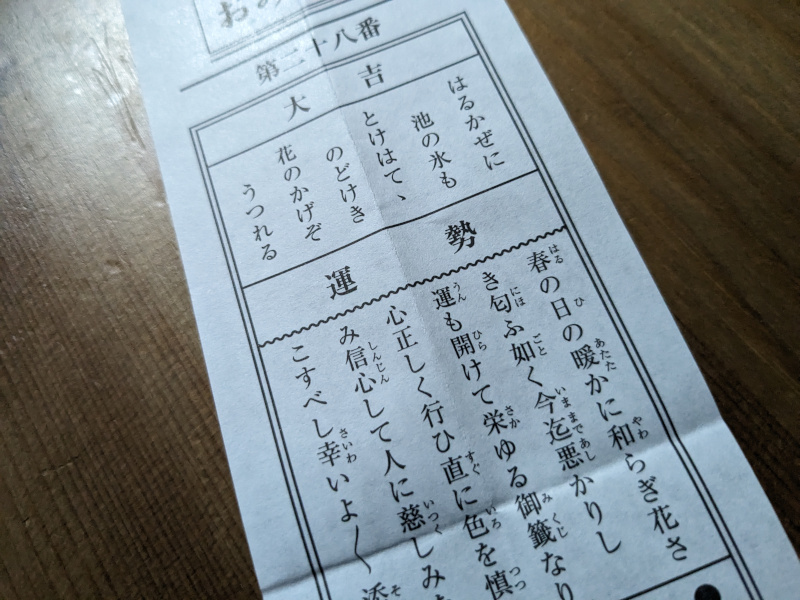 おみ
第二十八番
大吉
はるかぜに
池の氷も
とけはて、
のどけき
花のかげぞ
うつれる
運勢
春の日の暖かに和らぎ花さ
き匂ふ如く今迄悪かりし
運も開けて栄ゆる御籤なり
心正しく行ひ直に色を慎
み信心して人に慈しみ
こすべし幸いよ〱添